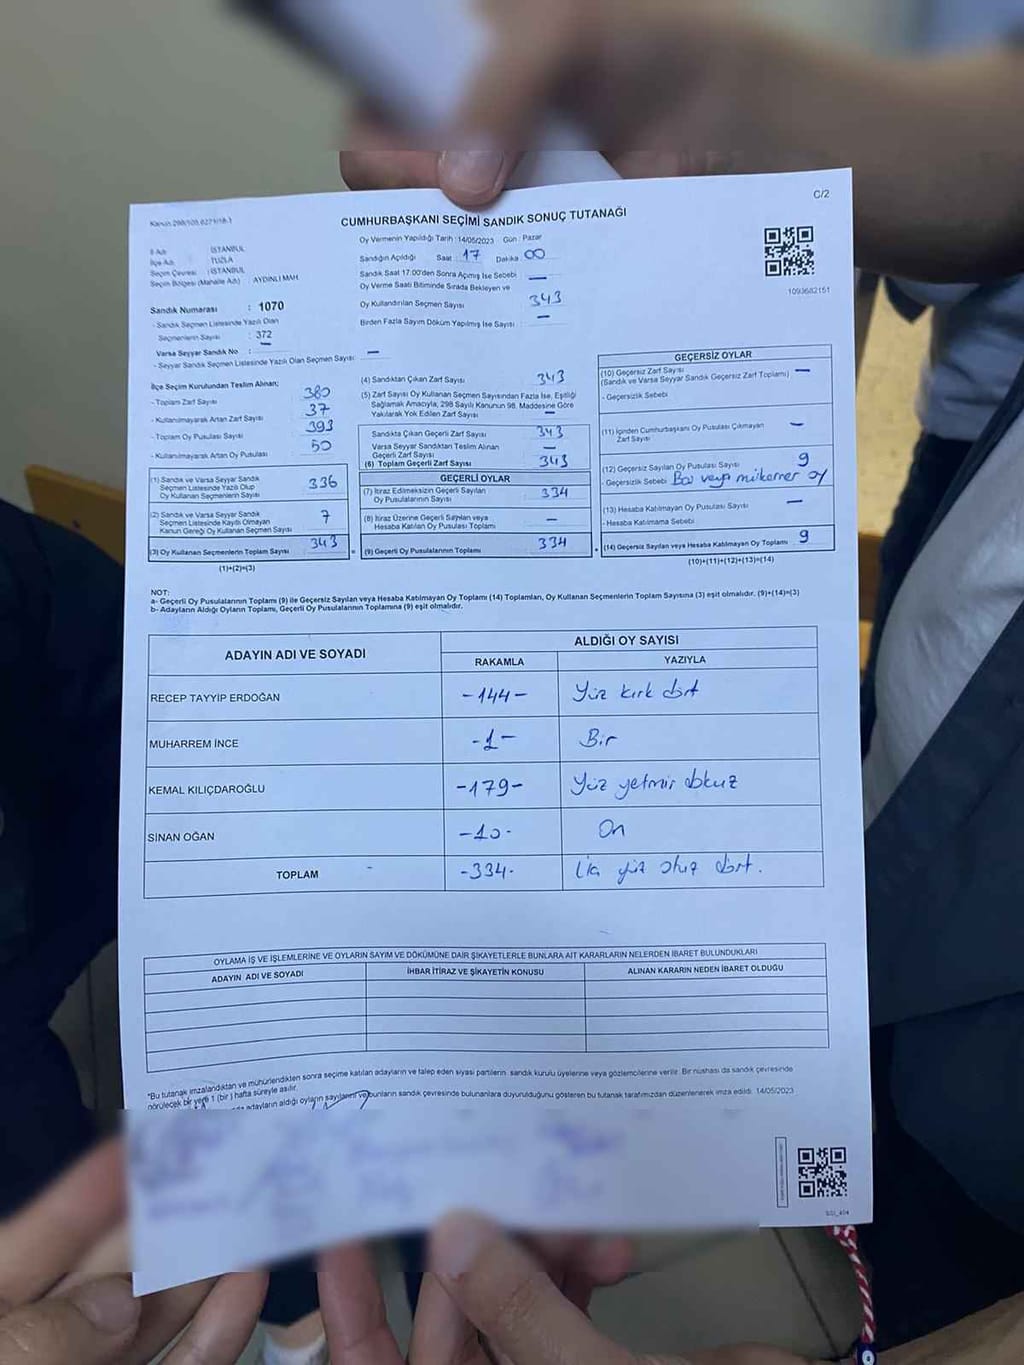 C/2
Kanun 298/105,6271/18-1
CUMHURBAŞKANI SEÇİMİ SANDIK SONUÇ TUTANAĞI
İl Adı : İSTANBUL
İlçe Adı : TUZLA
Seçim Çevresi : İSTANBUL
Seçim Bölgesi (Mahalle Adı) : AYDINLI MAH.
Oy Vermenin Yapıldığı Tarih : 14/05/2023 Gün : Pazar
Sandığın Açıldığı Saat 17 Dakika 00
Sandık Saat 17:00'den Sonra Açılmış İse Sebebi —
Oy Verme Saati Bitiminde Sırada Bekleyen ve
Oy Kullandırılan Seçmen Sayısı 343
Birden Fazla Sayım Döküm Yapılmış İse Sayısı : —
1093682151
Sandık Numarası : 1070
- Sandık Seçmen Listesinde Yazılı Olan
Seçmenlerin Sayısı : 372
Varsa Seyyar Sandık No : —
- Seyyar Sandık Seçmen Listesinde Yazılı Olan Seçmen Sayısı : —
İlçe Seçim Kurulundan Teslim Alınan;
- Toplam Zarf Sayısı 380
- Kullanılmayarak Artan Zarf Sayısı 37
- Toplam Oy Pusulası Sayısı 393
- Kullanılmayarak Artan Oy Pusulası 50
(1) Sandık ve Varsa Seyyar Sandık
Seçmen Listesinde Yazılı Olup
Oy Kullanan Seçmenlerin Sayısı 336
(2) Sandık ve Varsa Seyyar Sandık
Seçmen Listesinde Kaydı Olmayan
Kanun Gereği Oy Kullanan Seçmen Sayısı 7
(3) Oy Kullanan Seçmenlerin Toplam Sayısı 343 =
(1)+(2)=(3)
(4) Sandıktan Çıkan Zarf Sayısı 343
(5) Zarf Sayısı Oy Kullanan Seçmen Sayısından Fazla İse, Eşitliği
Sağlamak Amacıyla, 298 Sayılı Kanunun 98. Maddesine Göre
Yakılarak Yok Edilen Zarf Sayısı —
Sandıkta Çıkan Geçerli Zarf Sayısı 343
Varsa Seyyar Sandıktan Teslim Alınan
Geçerli Zarf Sayısı —
(6) Toplam Geçerli Zarf Sayısı 343
GEÇERLİ OYLAR
(7) İtiraz Edilmeksizin Geçerli Sayılan
Oy Pusulalarının Sayısı 334
(8) İtiraz Üzerine Geçerli Sayılan veya
Hesaba Katılan Oy Pusulası Toplamı —
(9) Geçerli Oy Pusulalarının Toplamı 334 +
GEÇERSİZ OYLAR
(10) Geçersiz Zarf Sayısı
(Sandık ve Varsa Seyyar Sandık Geçersiz Zarf Toplamı) —
- Geçersizlik Sebebi
(11) İçinden Cumhurbaşkanı Oy Pusulası Çıkmayan
Zarf Sayısı —
(12) Geçersiz Sayılan Oy Pusulası Sayısı 9
- Geçersizlik Sebebi Boş veya mükerrer oy
(13) Hesaba Katılmayan Oy Pusulası Sayısı —
- Hesaba Katılmama Sebebi
(14) Geçersiz Sayılan veya Hesaba Katılmayan Oy Toplamı 9
(10)+(11)+(12)+(13)=(14)
NOT:
a- Geçerli Oy Pusulalarının Toplamı (9) ile Geçersiz Sayılan veya Hesaba Katılmayan Oy Toplamı (14) Toplamları, Oy Kullanan Seçmenlerin Toplam Sayısına (3) eşit olmalıdır. (9)+(14)=(3)
b- Adayların Aldığı Oyların Toplamı, Geçerli Oy Pusulalarının Toplamına (9) eşit olmalıdır.
ADAYIN ADI VE SOYADI ALDIĞI OY SAYISI
RAKAMLA YAZIYLA
RECEP TAYYİP ERDOĞAN -144- Yüz kırk dört
MUHARREM İNCE -1- Bir
KEMAL KILIÇDAROĞLU -179- Yüz yetmiş dokuz
SİNAN OĞAN -10- On
TOPLAM -334- Üç yüz otuz dört.
OYLAMA İŞ VE İŞLEMLERİNE VE OYLARIN SAYIM VE DÖKÜMÜNE DAİR ŞİKAYETLERLE BUNLARA AİT KARARLARIN NELERDEN İBARET BULUNDUKLARI
ADAYIN ADI VE SOYADI İHBAR İTİRAZ VE ŞİKAYETİN KONUSU ALINAN KARARIN NEDEN İBARET OLDUĞU
*Bu tutanak imzalandıktan ve mühürlendikten sonra seçime katılan adayların ve talep eden siyasi partilerin sandık kurulu üyelerine veya gözlemcilerine verilir. Bir nüshası da sandık çevresinde
görülecek bir yere 1 (bir ) hafta süreyle asılır.
adayların aldığı oyların sayılarını ve bunların sandık çevresinde bulunanlara duyurulduğunu gösteren bu tutanak tarafımızdan düzenlenerek imza edildi. 14/05/2023